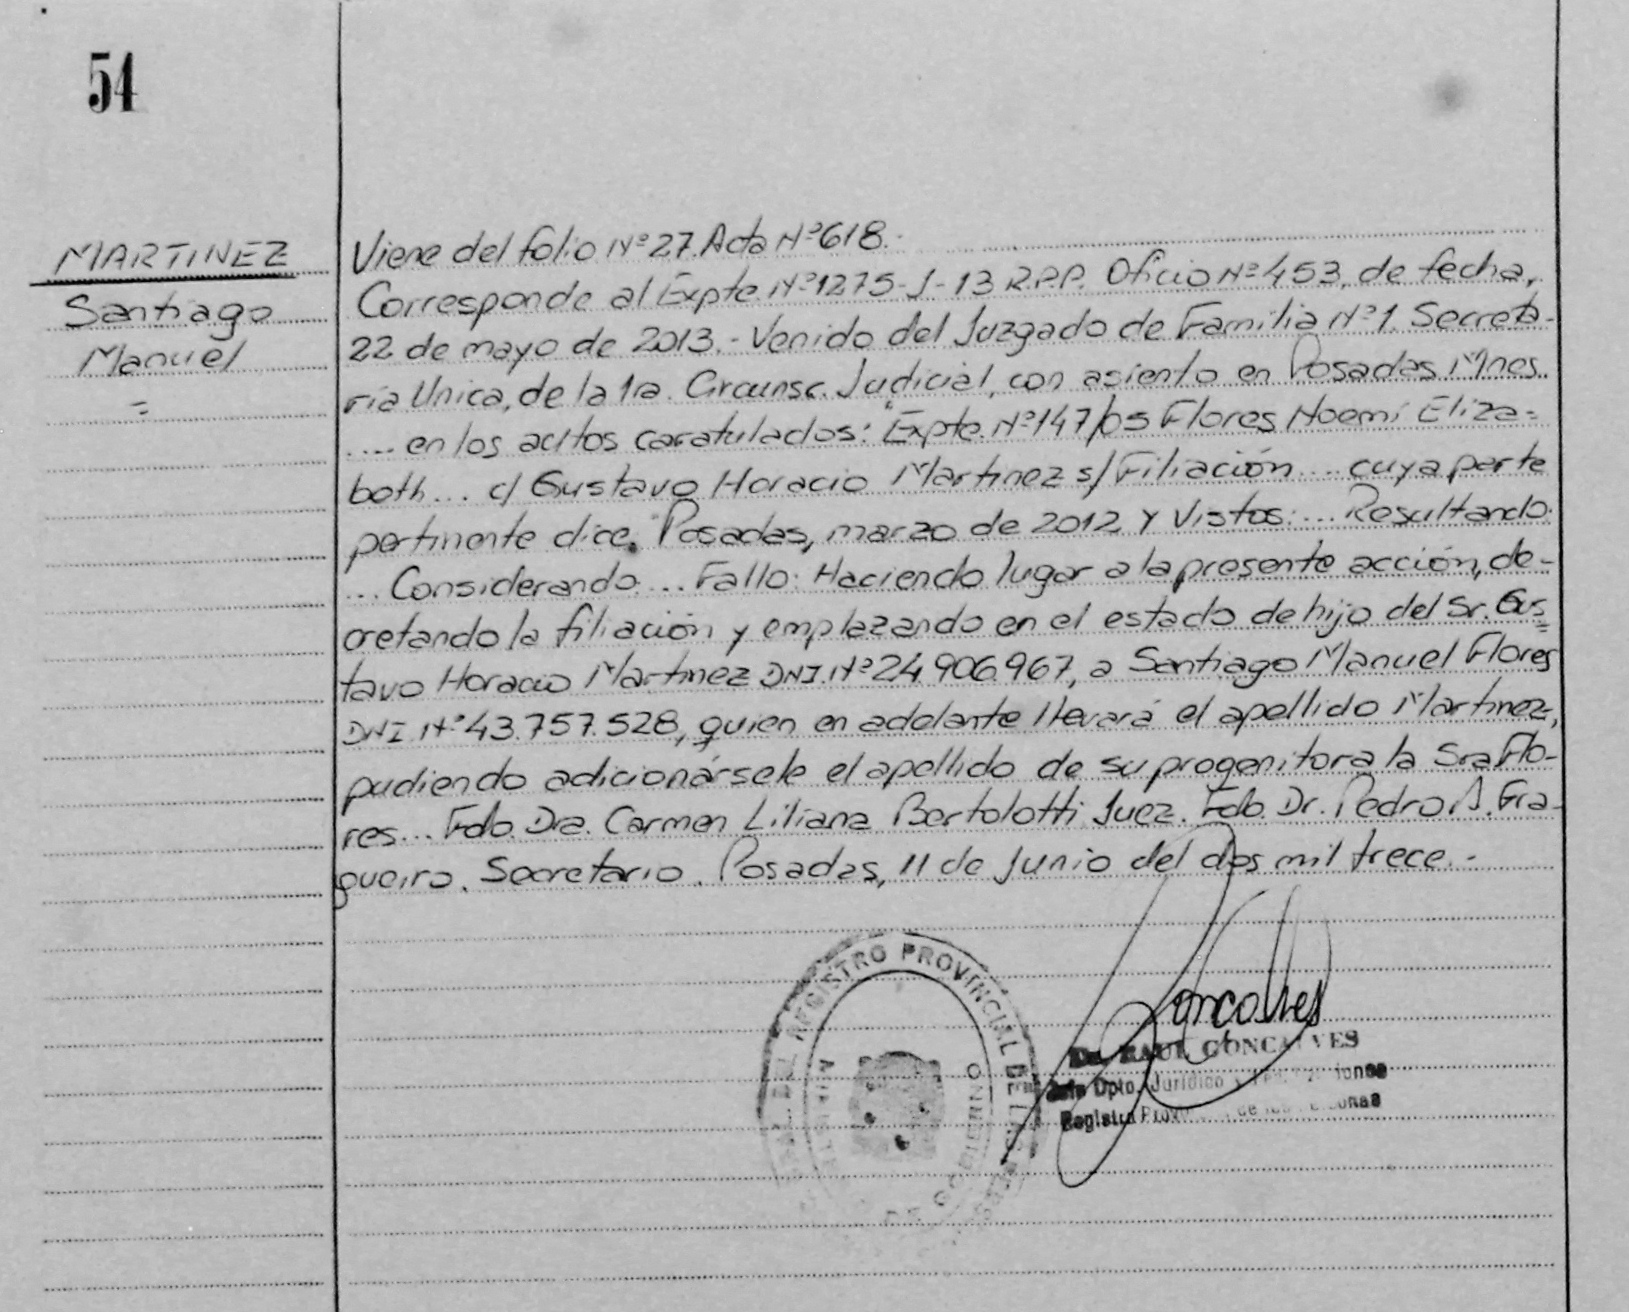 54
MARTINEZ
Santiago
Manuel
=
Viene del folio Nº 27. Acta Nº 618.-
Corresponde al Expte. Nº 1275-J-13 R.P.P. Oficio Nº 453, de fecha,
22 de mayo de 2013.- Venido del Juzgado de Familia Nº 1. Secreta-
ría Unica, de la 1ra. Circunsc. Judicial, con asiento en Posadas Mnes.
.... en los autos caratulados: Expte. Nº 147/05 Flores Noemí Eliza=
beth... c/ Gustavo Horacio Martinez s/ Filiación.... cuya parte
pertinente dice. Posadas, marzo de 2012 y Vistos:... Resultando:
... Considerando:... Fallo: Haciendo lugar a la presente acción, de-
cretando la filiación y emplazando en el estado de hijo del Sr. Gus=
tavo Horacio Martinez DNI. Nº 24.906.967, a Santiago Manuel Flores
DNI Nº 43.757.528, quien en adelante llevará el apellido Martinez,
pudiendo adicionársele el apellido de su progenitora la Sra Flo-
res... Fdo. Dra. Carmen Liliana Bertolotti Juez. Fdo. Dr. Pedro A. Fra-
gueiro. Secretario. Posadas, 11 de Junio del dos mil trece.-
DEL REGISTRO PROVINCIAL DE LAS
DE GOBIERNO
Goncalves
Dr. RAUL GONCALVES
Jefe Dpto. Jurídico y
Registro